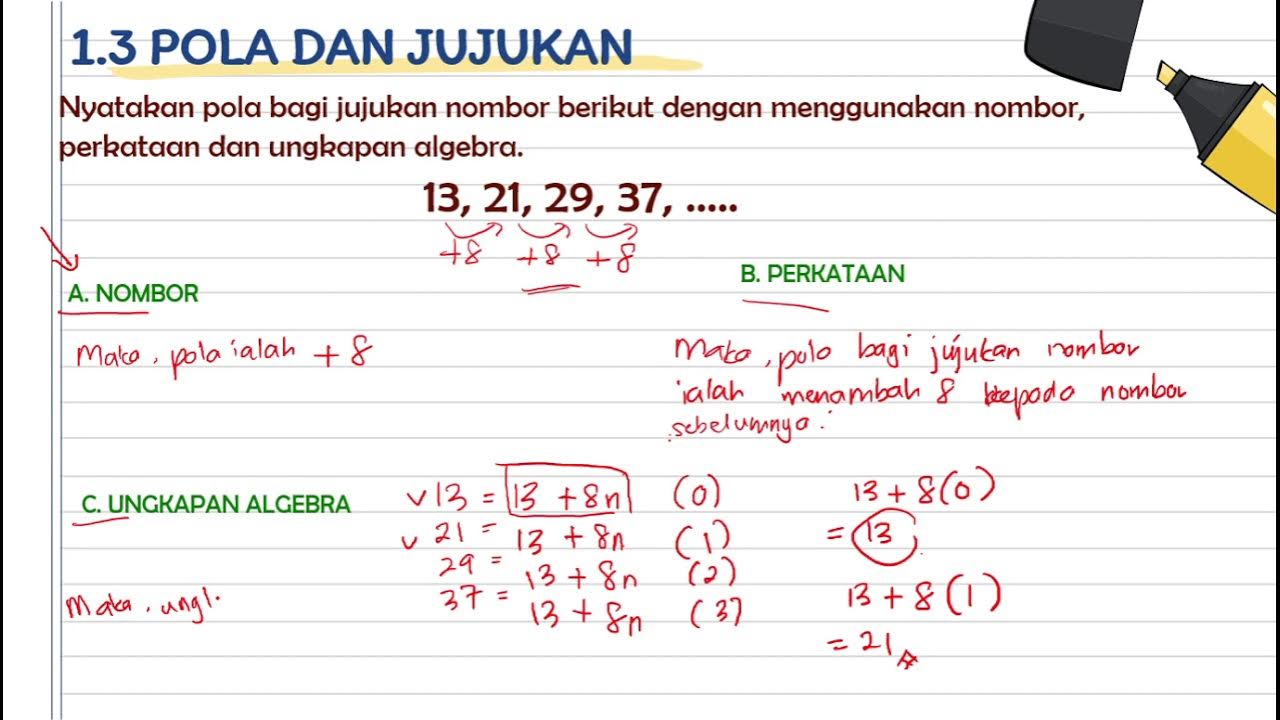 1.3 POLA DAN JUJUKAN
Nyatakan pola bagi jujukan nombor berikut dengan menggunakan nombor,
perkataan dan ungkapan algebra.
13, 21, 29, 37, .....
+8 +8 +8
A. NOMBOR
Maka, pola ialah +8
B. PERKATAAN
Maka, pola bagi jujukan nombor
ialah menambah 8 kepada nombor
sebelumnya.
C. UNGKAPAN ALGEBRA
13 = 13 + 8n (0)
21 = 13 + 8n (1)
29 = 13 + 8n (2)
37 = 13 + 8n (3)
13 + 8(0)
= 13
13 + 8(1)
= 21
Maka, ungk